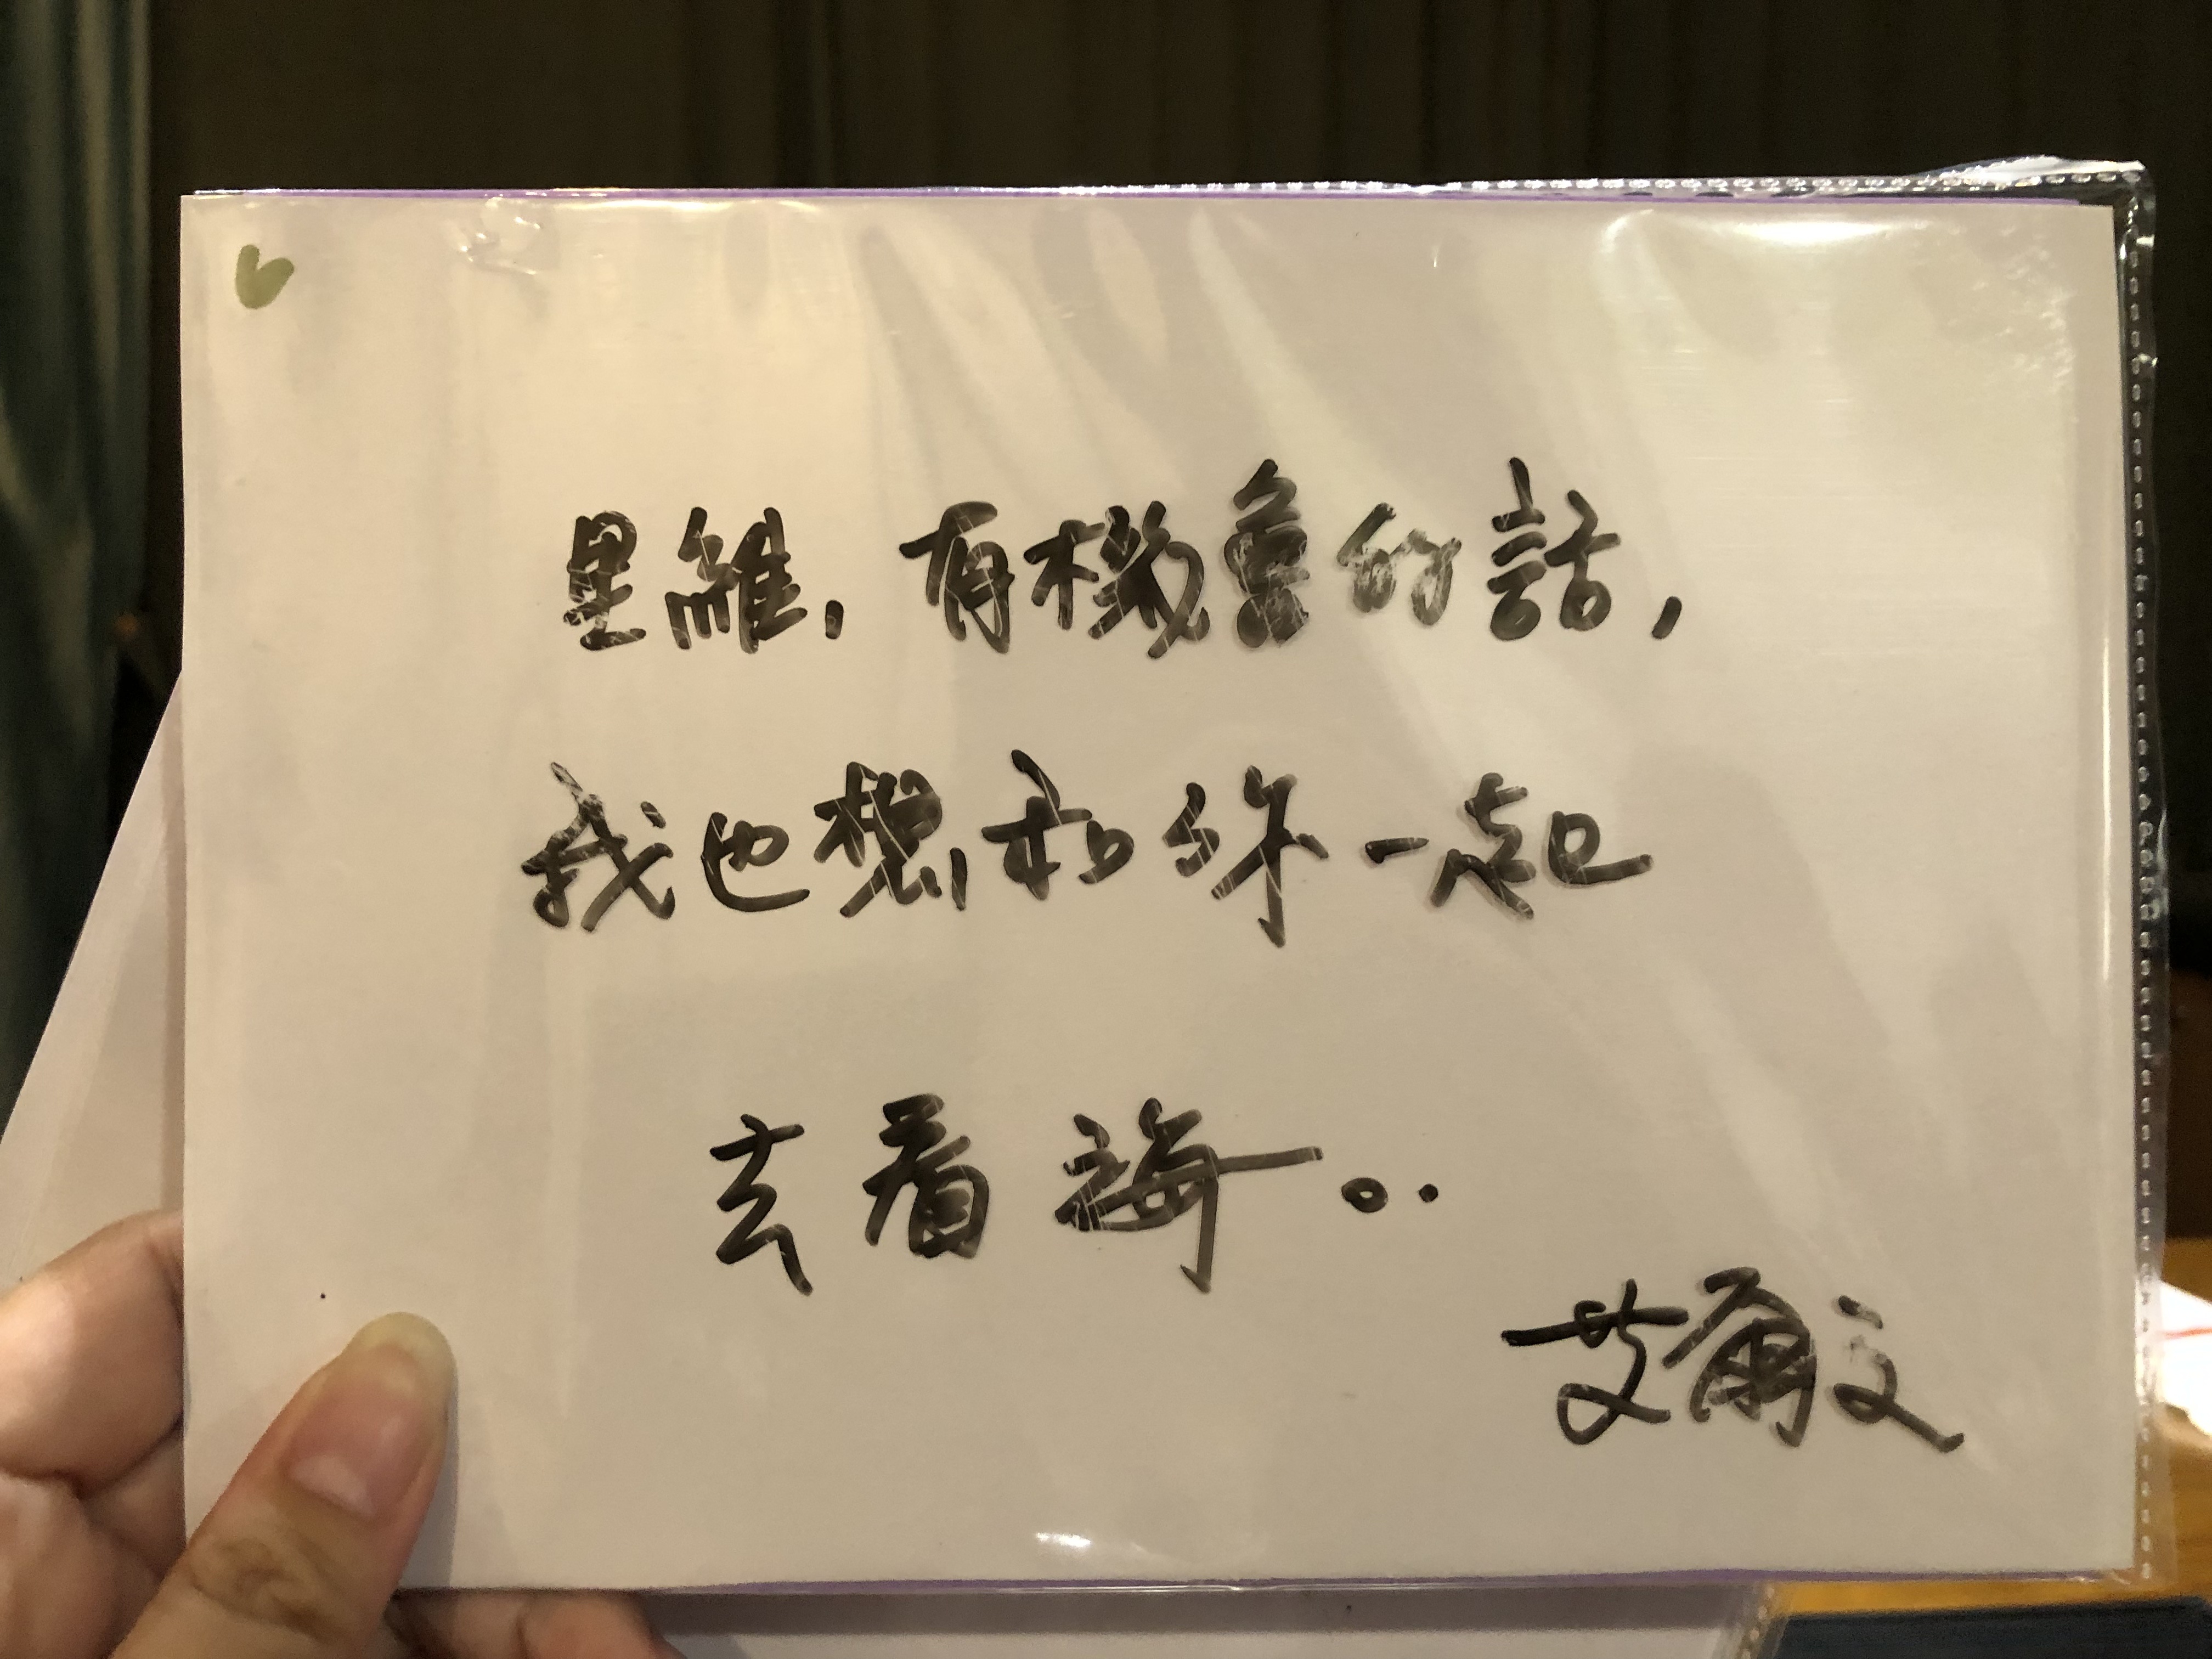 里維，有機會的話，
我也想和你一起
去看海一。.
艾爾文